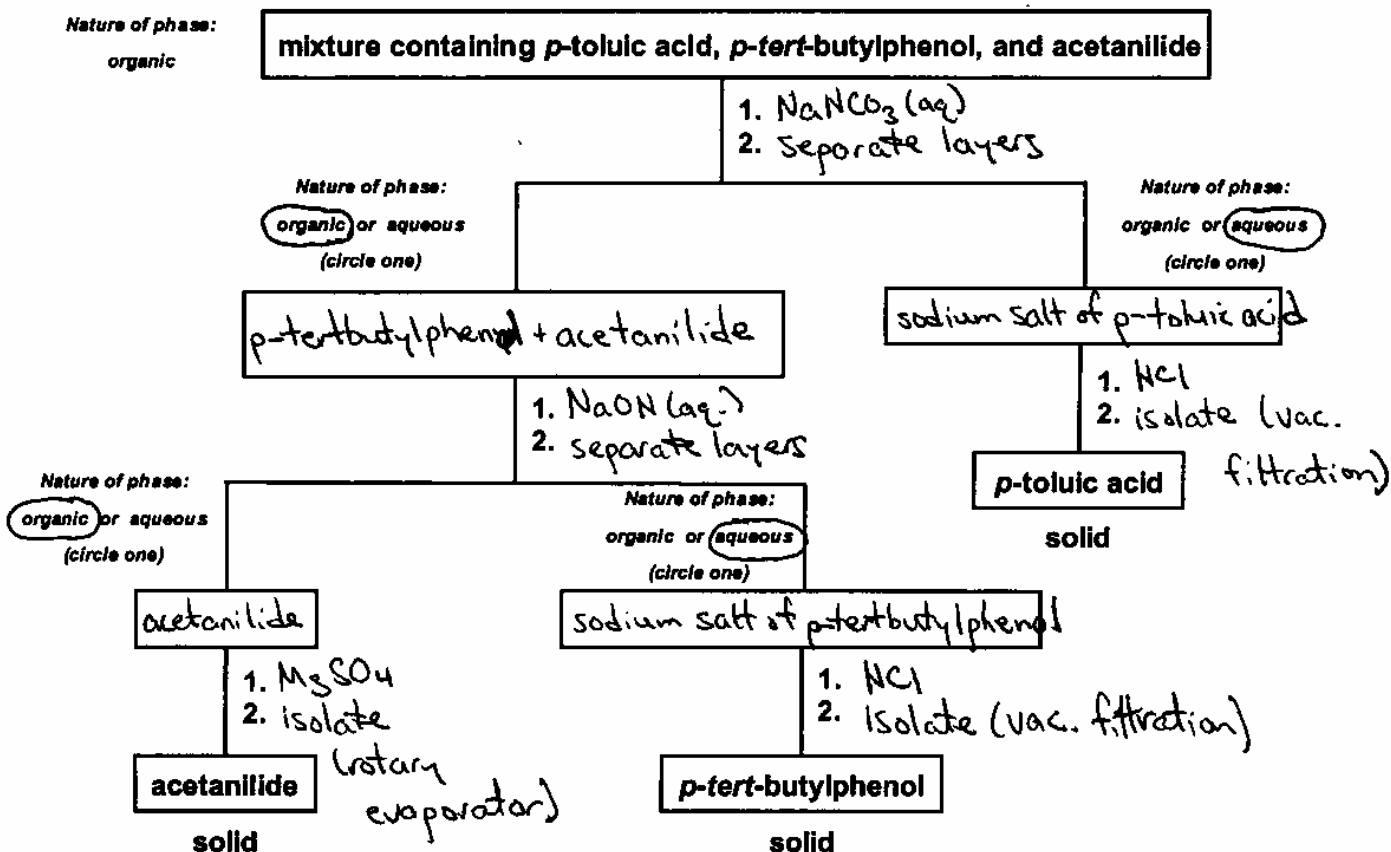 Nature of phase:
organic
mixture containing p-toluic acid, p-tert-butylphenol, and acetanilide
1. NaHCO3 (aq)
2. separate layers
Nature of phase:
organic or aqueous
(circle one)
Nature of phase:
organic or aqueous
(circle one)
p-tertbutylphenol + acetanilide
sodium salt of p-toluic acid
1. HCl
2. isolate (vac.
filtration)
p-toluic acid
solid
1. NaOH (aq.)
2. separate layers
Nature of phase:
organic or aqueous
(circle one)
Nature of phase:
organic or aqueous
(circle one)
acetanilide
sodium salt of p-tertbutylphenol
1. MgSO4
2. isolate
(rotary
evaporator)
1. HCl
2. isolate (vac. filtration)
acetanilide
solid
p-tert-butylphenol
solid